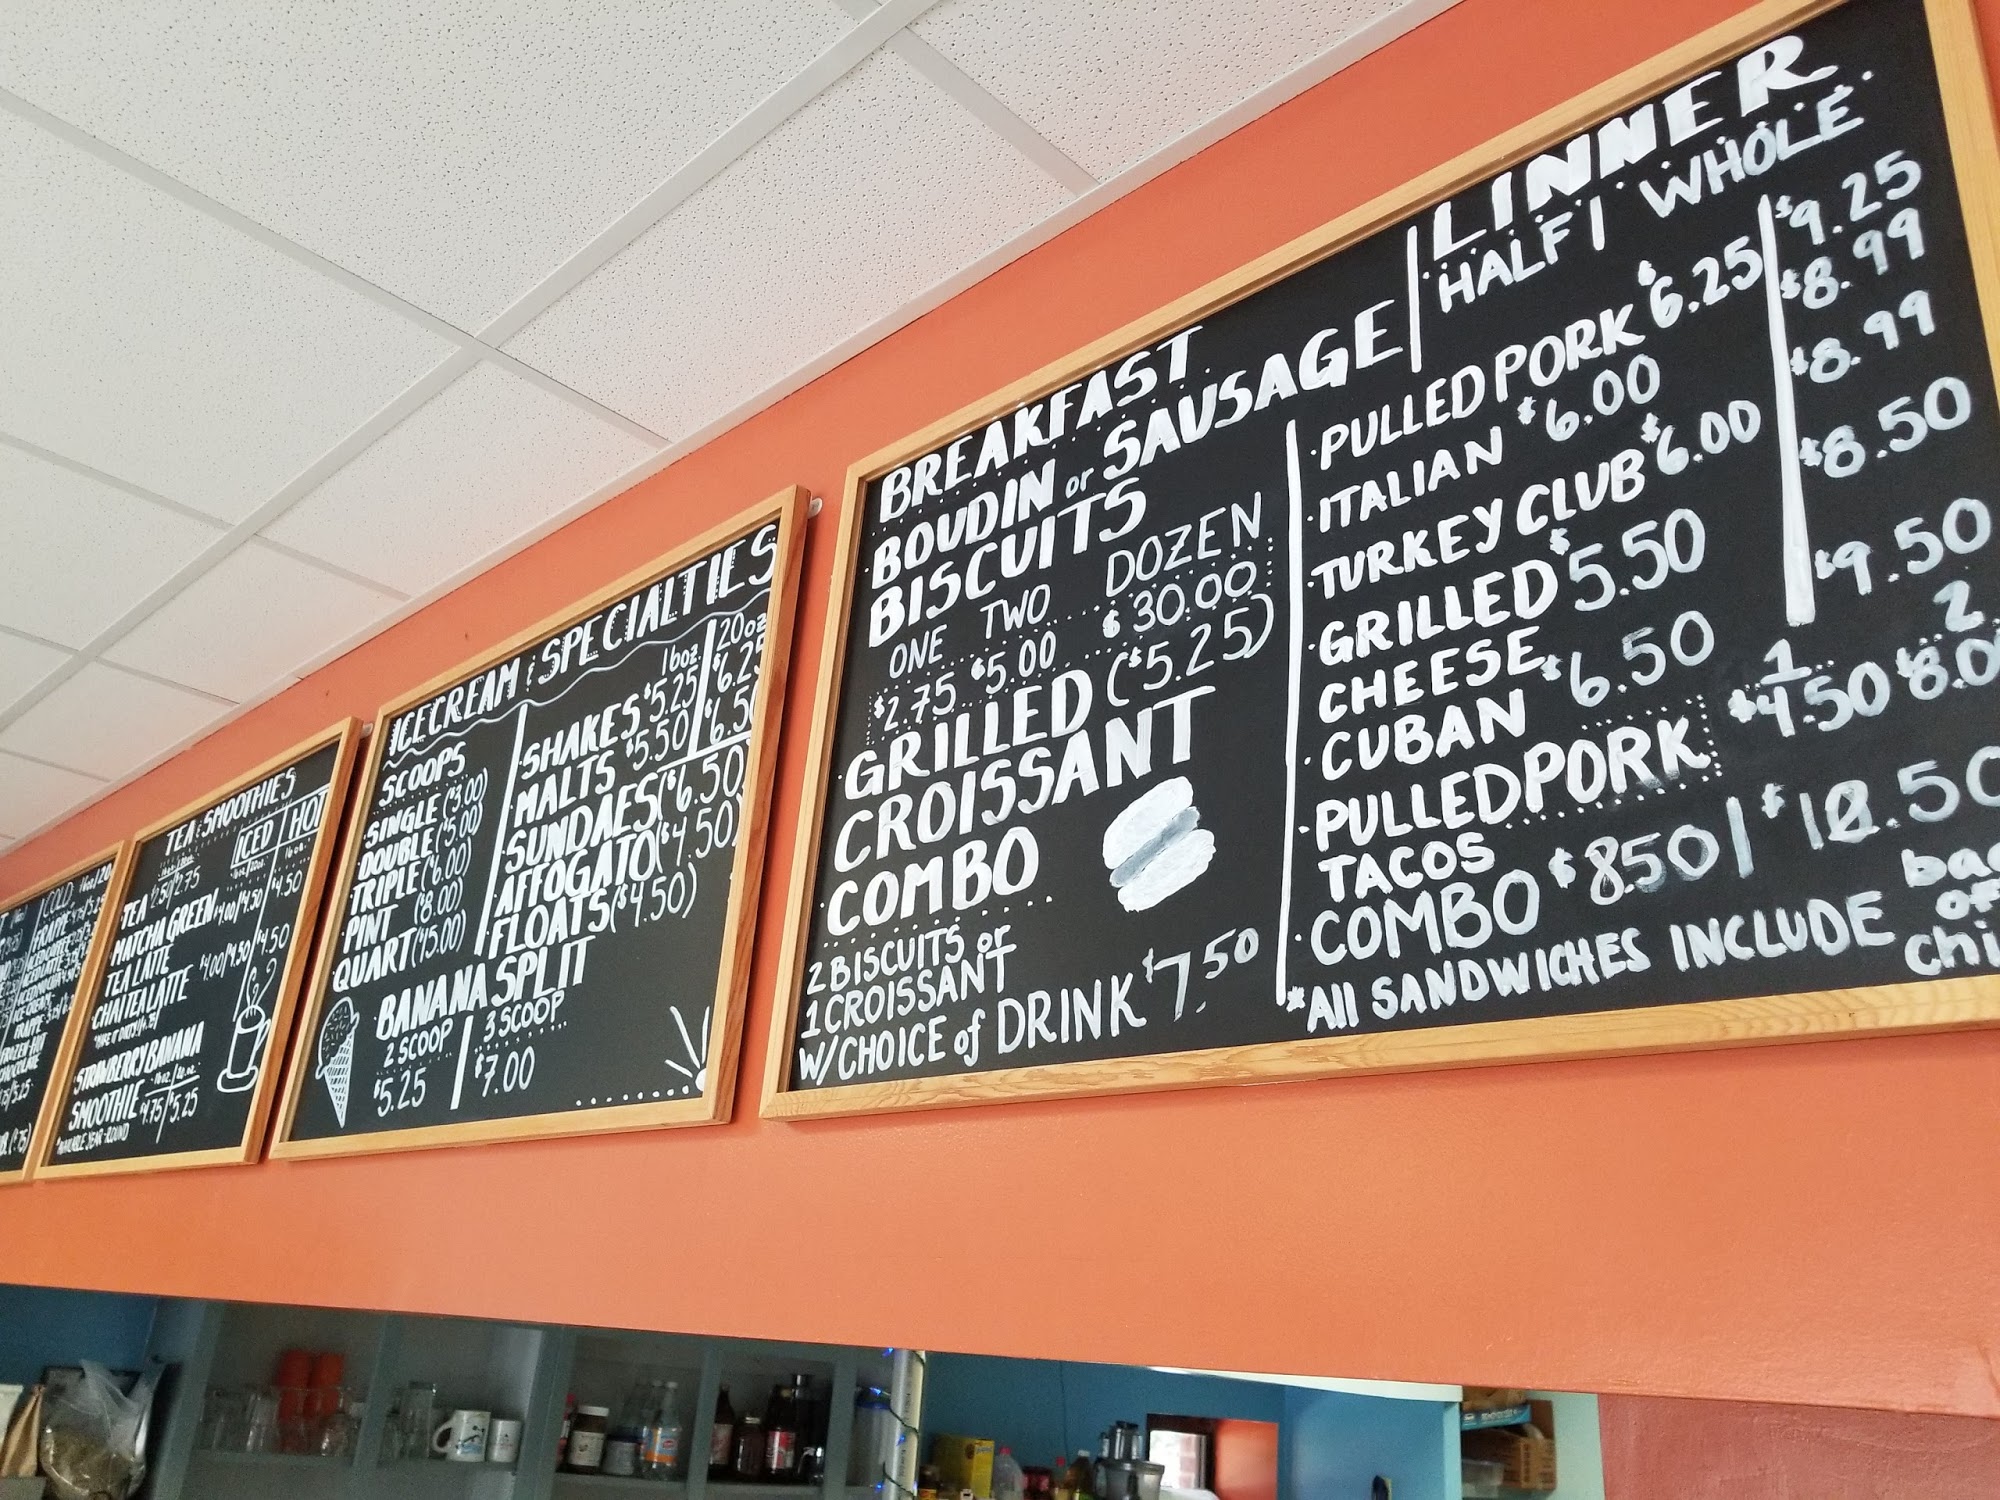 COLD
FRAPPE
TEA & SMOOTHIES
ICED / HOT
TEA $2.50/2.75
MATCHA GREEN $4.00/$4.50 $4.50
TEA LATTE
CHAI TEA LATTE $4.00/$4.50 $4.50
STRAWBERRY BANANA
16oz 20oz
SMOOTHIE $4.75/$5.25
*AVAILABLE YEAR-ROUND
ICE CREAM & SPECIALTIES
SCOOPS
SINGLE ($3.00)
DOUBLE ($5.00)
TRIPLE ($6.00)
PINT ($8.00)
QUART ($15.00)
16oz. 20oz
SHAKES $5.25 $6.25
MALTS $5.50 $6.50
SUNDAES ($6.50)
AFFOGATO ($4.50)
FLOATS ($4.50)
BANANA SPLIT
2 SCOOP 3 SCOOP
$5.25 $7.00
BREAKFAST
BOUDIN or SAUSAGE
BISCUITS
ONE TWO DOZEN
$2.75 $5.00 $30.00
GRILLED ($5.25)
CROISSANT
COMBO
2 BISCUITS or
1 CROISSANT
W/CHOICE of DRINK $7.50
LINNER
HALF | WHOLE
PULLED PORK $6.25 $9.25
ITALIAN $6.00 $8.99
TURKEY CLUB $6.00 $8.99
GRILLED $5.50 $8.50
CHEESE
CUBAN $6.50 $9.50
1 2
PULLED PORK $4.50 $8.0
TACOS
COMBO $8.50 | $10.50
*All SANDWICHES INCLUDE